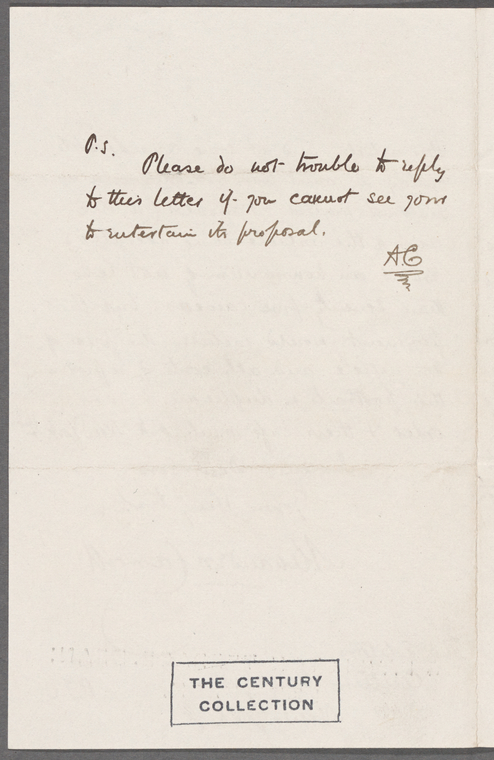 P.S.
Please do not trouble to reply
to this letter if you cannot see your
to entertain its proposal.
A.C
THE CENTURY
COLLECTION